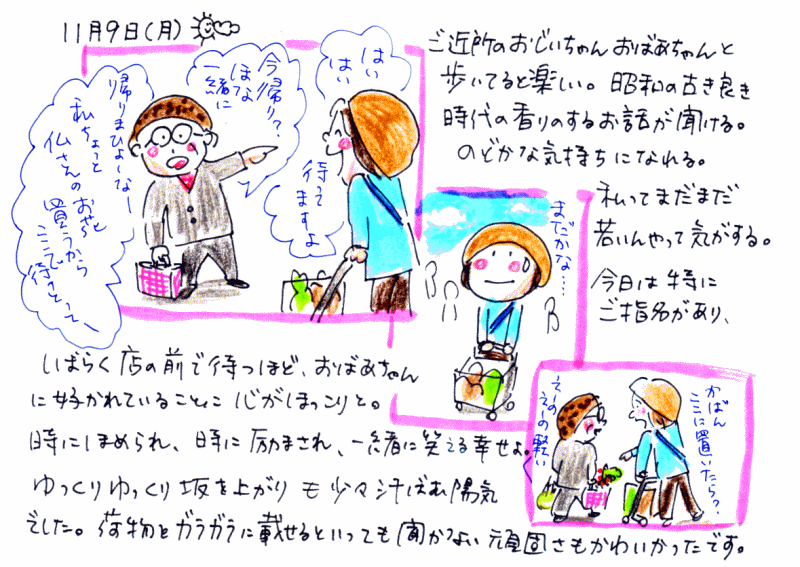 11月9日(月)
今帰り?
ほな
一緒に
帰りまひょーなー
私ちょっと
仏さんのお花
買うから
ここで
待っとって〜
はい
はい
待って
ますよ
ご近所のおじいちゃん おばあちゃんと
歩いてると楽しい。 昭和の古き良き
時代の香りのするお話が聞ける。
のどかな気持ちになれる。
私ってまだまだ
若いんやって気がする。
今日は特に
ご指名があり、
まだかな…
しばらく店の前で待つほど、おばあちゃん
に好かれていることに心がほっこりと。
時にほめられ、時に励まされ、一緒に笑える幸せよ。
ゆっくりゆっくり坂を上がりも少々汗ばむ陽気
でした。荷物をガラガラに載せるといっても聞かない頑固さもかわいかったです。
かばん
ここに置いたら?
えーの
えーの